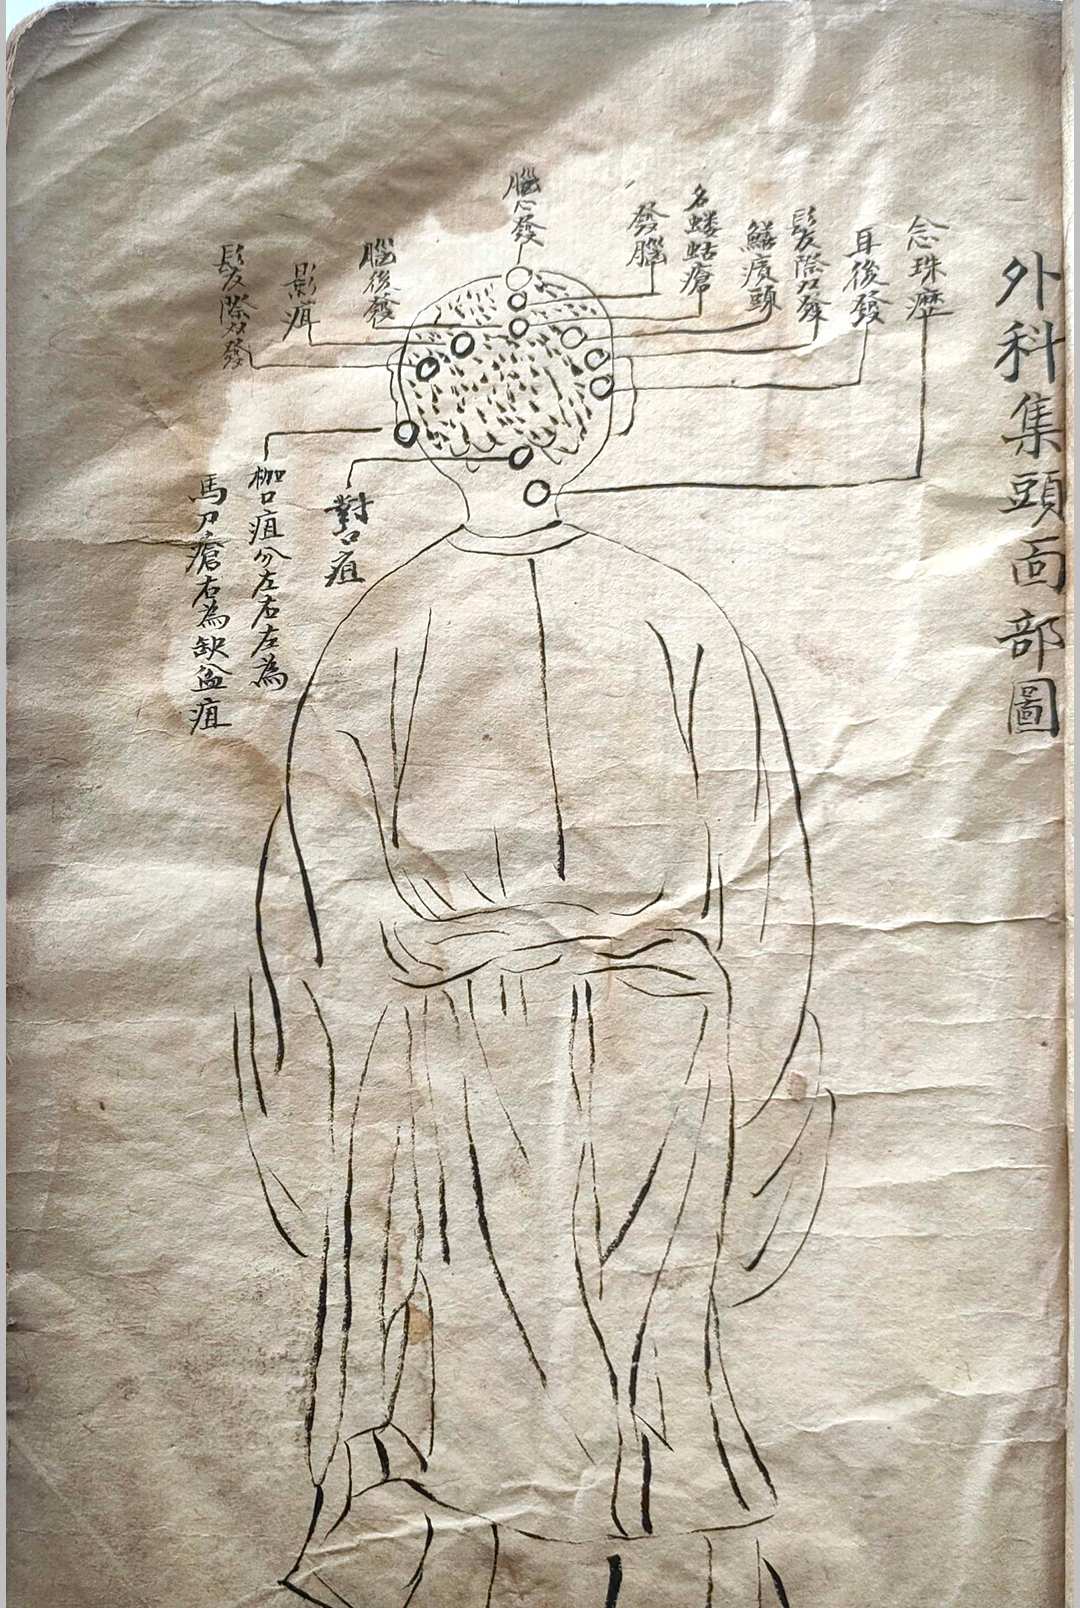 外科集頭面部圖
念珠癧
耳後發
髮際發
鱔䐵頭
名螻蛄瘡
發腦
腦心發
腦後發
影疽
髮際發
對口疽
枷口疽分左右左為
馬刀瘡右為缺盆疽